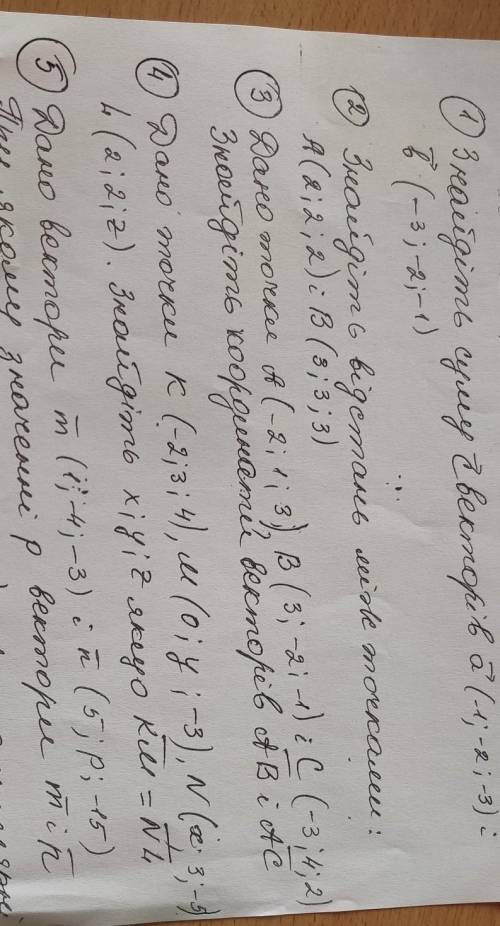 ① Знайдіть суму векторів a⃗ (-1; -2; -3) і
b⃗ (-3; -2; -1)
② Знайдіть відстань між точками:
A(2; 2; 2) і B(3; 3; 3)
③ Дано точки A(-2; 1; 3), B(3; -2; -1) і C(-3; 4; 2)
Знайдіть координати векторів A̅B̅ і A̅C̅
④ Дано точки K(-2; 3; 4), M(0; y; -3), N(x; 3; -5)
L(2; 2; z). Знайдіть x; y; z якщо K̅M̅ = N̅L̅
⑤ Дано вектори m̅ (1; -4; -3) і n̅ (5; p; -15)
При якому значенні p вектори m̅ і n̅